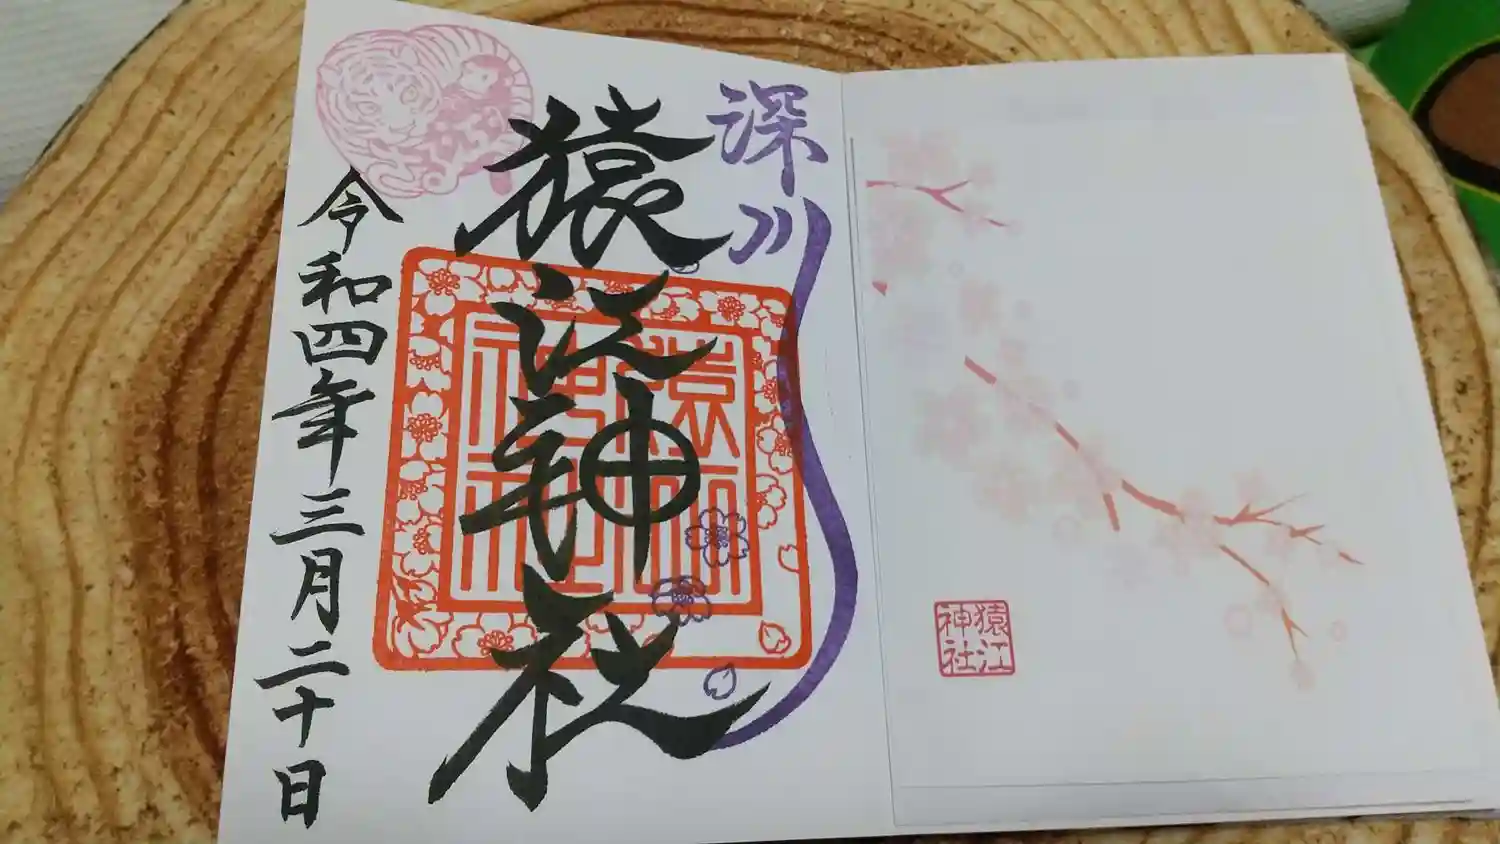 深川
猿江神社
猿江
神社
令和四年三月二十日
猿江
神社